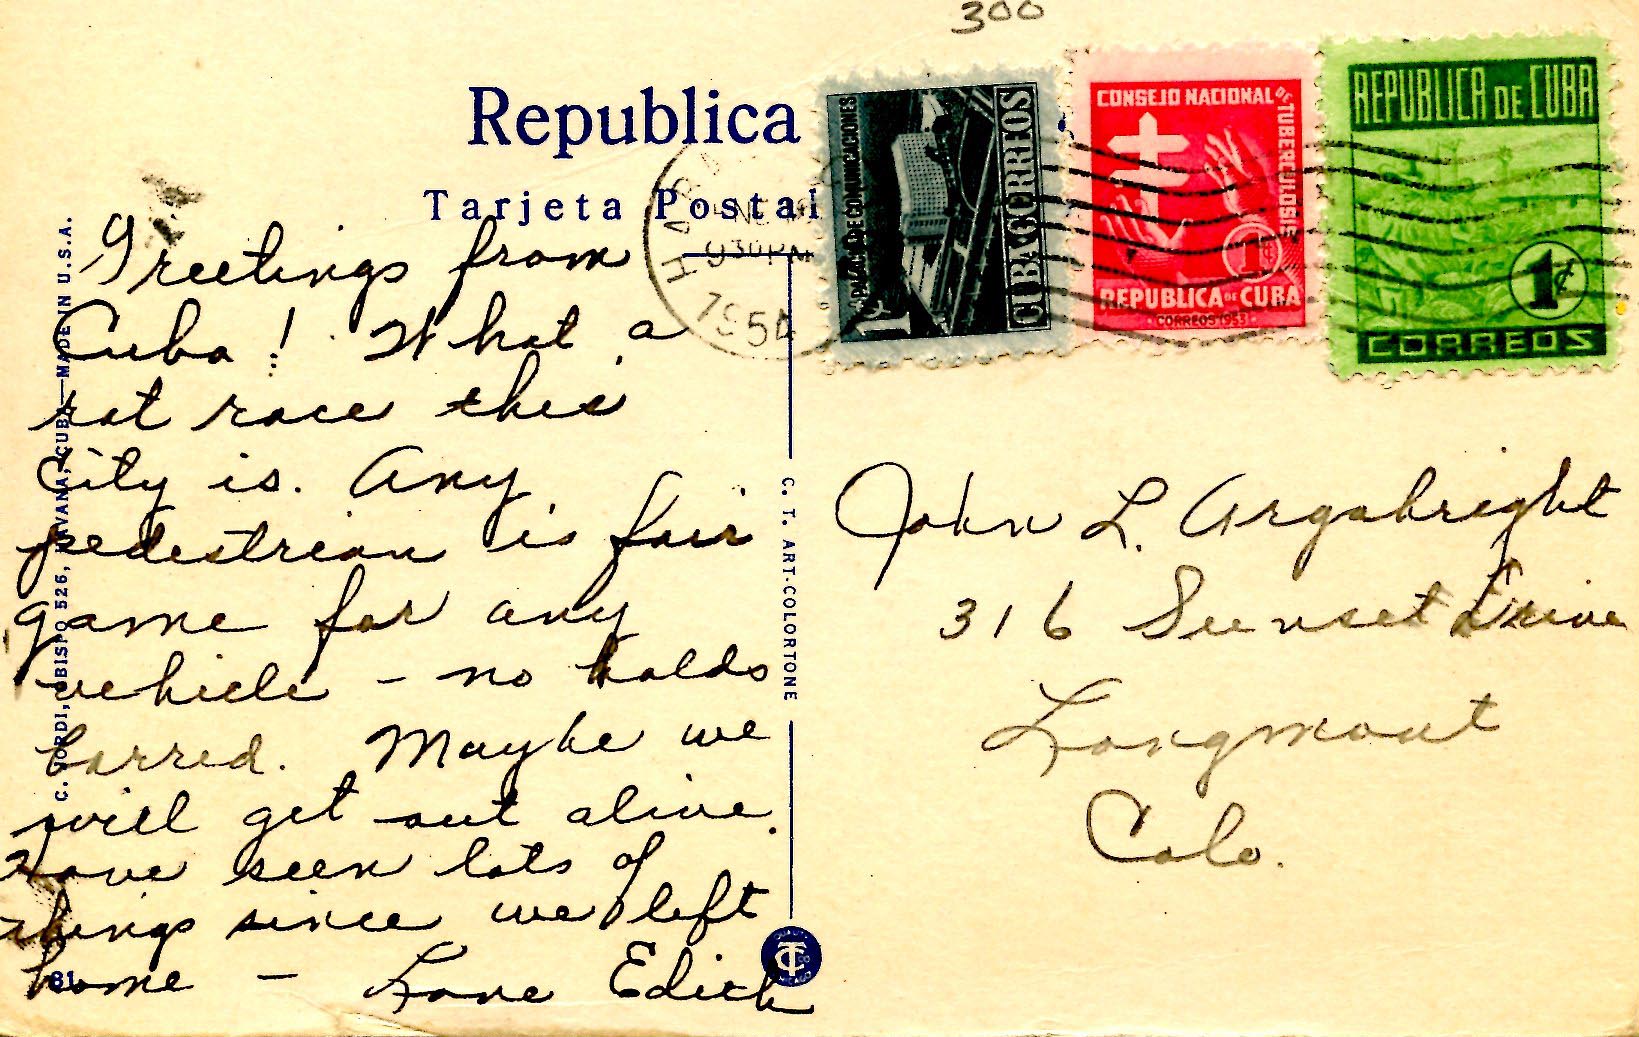 300
Republica
Tarjeta Postal
HABA
ENE
930 PM
1954
PALACIO DE COMUNICACIONES
1¢
CUBA CORREOS
CONSEJO NACIONAL DE TUBERCULOSIS
1¢
REPUBLICA DE CUBA
CORREOS 1953
REPUBLICA DE CUBA
1¢
CORREOS
Greetings from
Cuba! What a
rat race this
City is. Any
pedestrian is fair
game for any
vehicle - no holds
barred. Maybe we
will get out alive.
Have seen lots of
things since we left
home - Love Edith
John L. Argabright
316 Sunset Drive
Longmont
Colo.
C. JORDI, OBISPO 526, HAVANA, CUBA—MADE IN U.S.A.
C. T. ART-COLORTONE
CT
81